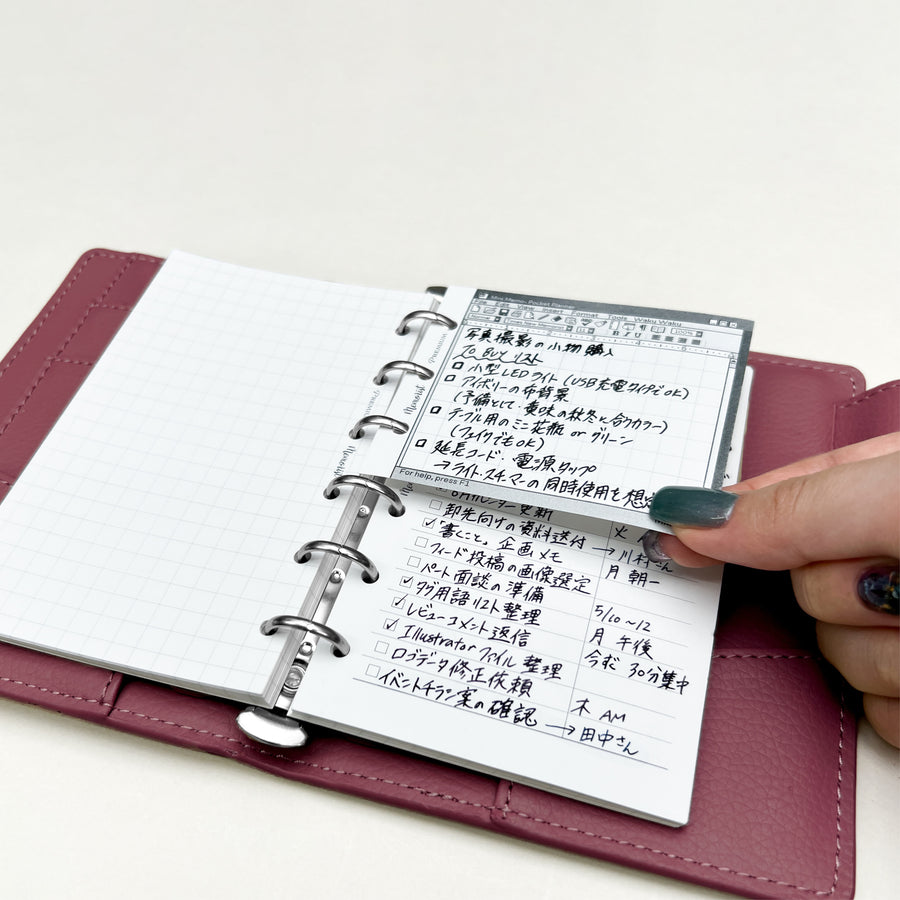 Mini Memo- Pocket Planner
File Edit View Insert Format Tools Waku Waku
100%
B I U
写真撮影の小物購入
To Buy リスト
小型LEDライト (USB充電タイプでOK)
アイボリーの布背景
(予備として・黄味の秋冬と合うカラー)
テーブル用のミニ花瓶 or グリーン
(フェイクでもOK)
延長コード・電源タップ
→ライト・スキャナーの同時使用を想定
For help, press F1
Memorist PREMIUM
Memorist PREMIUM
更新
卸先向けの資料送付 →川村さん
✓「書くこと」企画メモ 月 朝一
フィード投稿の画像選定
パート面談の準備 5/10～12
✓タグ用語リスト整理 月 午後
✓レビューコメント返信 今む 30分集中
✓Illustratorファイル整理
ロゴデータ修正依頼 木 AM
イベントチラシ案の確認 →田中さん